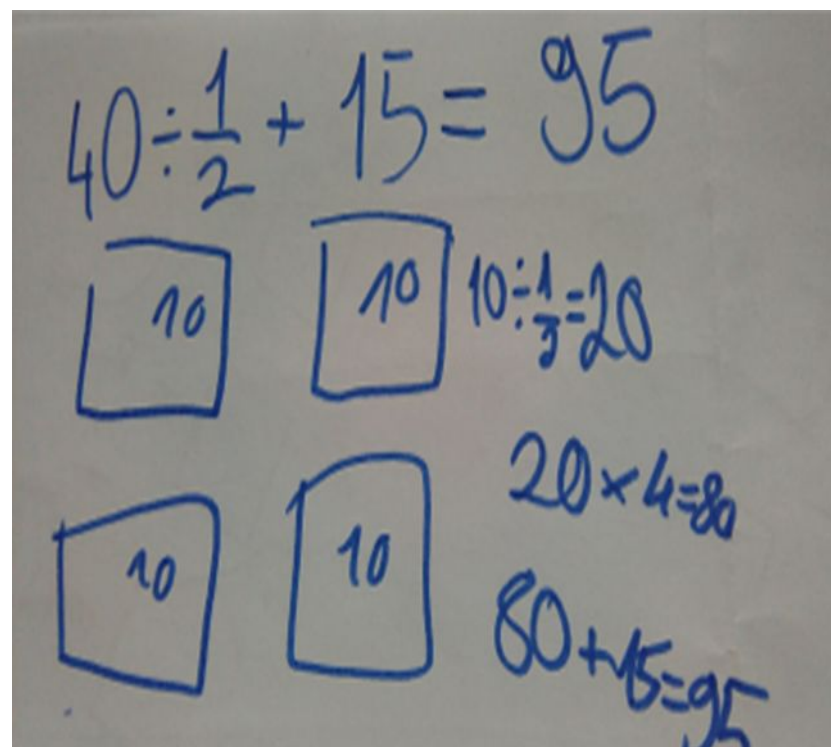 40÷1/2 + 15 = 95
10
10
10÷1/2=20
10
10
20×4=80
80+15=95